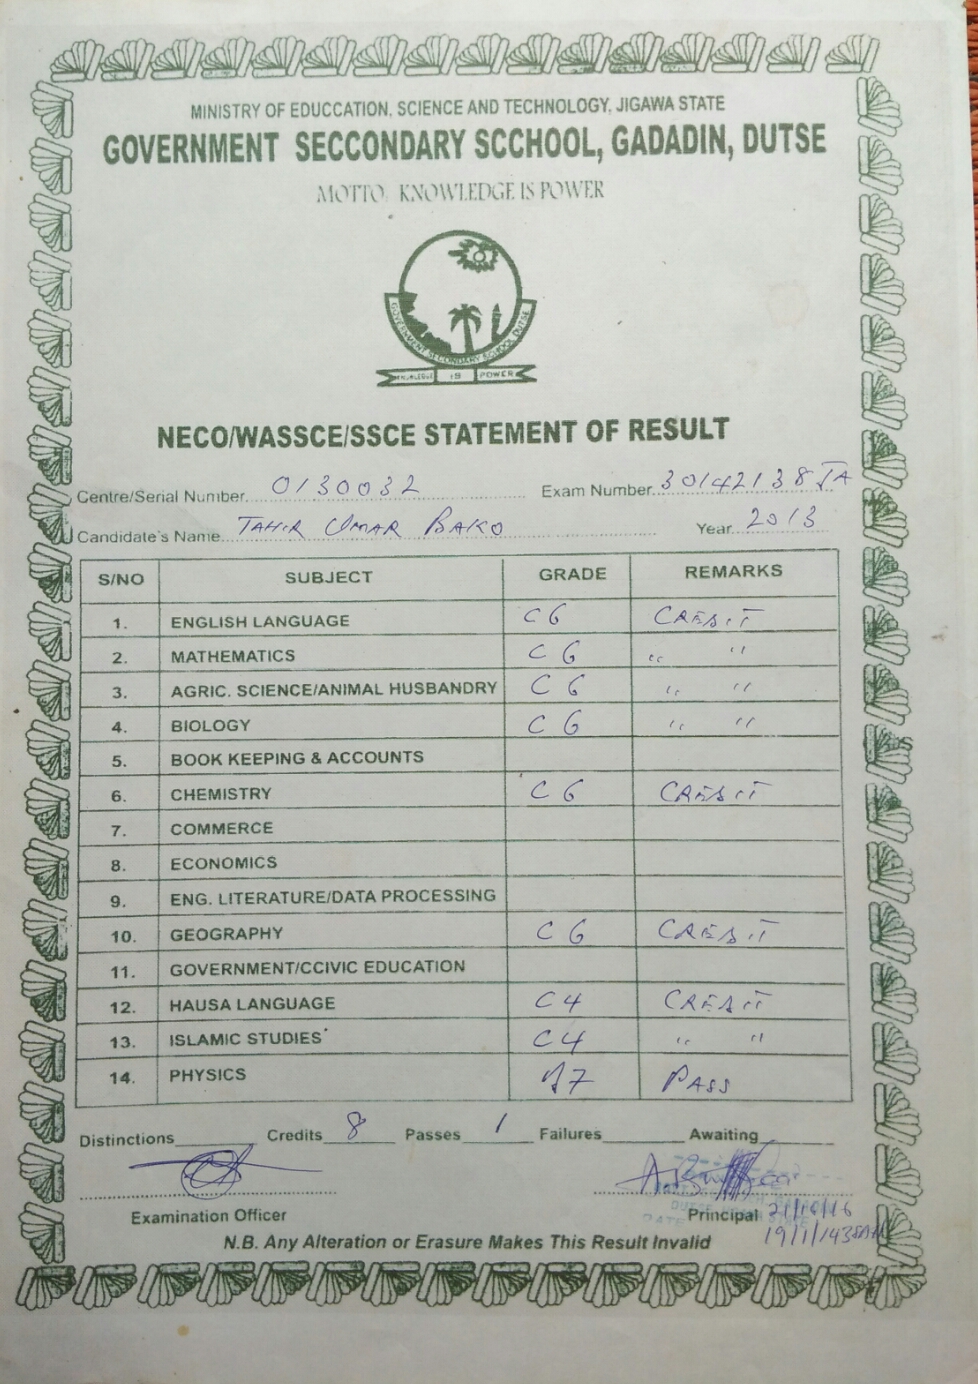 MINISTRY OF EDUCCATION, SCIENCE AND TECHNOLOGY, JIGAWA STATE
GOVERNMENT SECCONDARY SCCHOOL, GADADIN, DUTSE
MOTTO KNOWLEDGE IS POWER
GOVERNMENT SECONDARY SCHOOL DUTSE
KNOWLEDGE IS POWER
NECO/WASSCE/SSCE STATEMENT OF RESULT
Centre/Serial Number 0130032 Exam Number 30142138JA
Candidate's Name TAHIR UMAR BAKO Year 2013
S/NO SUBJECT GRADE REMARKS
1. ENGLISH LANGUAGE C6 CREDIT
2. MATHEMATICS C6 " "
3. AGRIC. SCIENCE/ANIMAL HUSBANDRY C6 " "
4. BIOLOGY C6 " "
5. BOOK KEEPING & ACCOUNTS
6. CHEMISTRY C6 CREDIT
7. COMMERCE
8. ECONOMICS
9. ENG. LITERATURE/DATA PROCESSING
10. GEOGRAPHY C6 CREDIT
11. GOVERNMENT/CCIVIC EDUCATION
12. HAUSA LANGUAGE C4 CREDIT
13. ISLAMIC STUDIES C4 " "
14. PHYSICS D7 PASS
Distinctions Credits 8 Passes 1 Failures Awaiting
Examination Officer Principal
19/1/1438AH
N.B. Any Alteration or Erasure Makes This Result Invalid